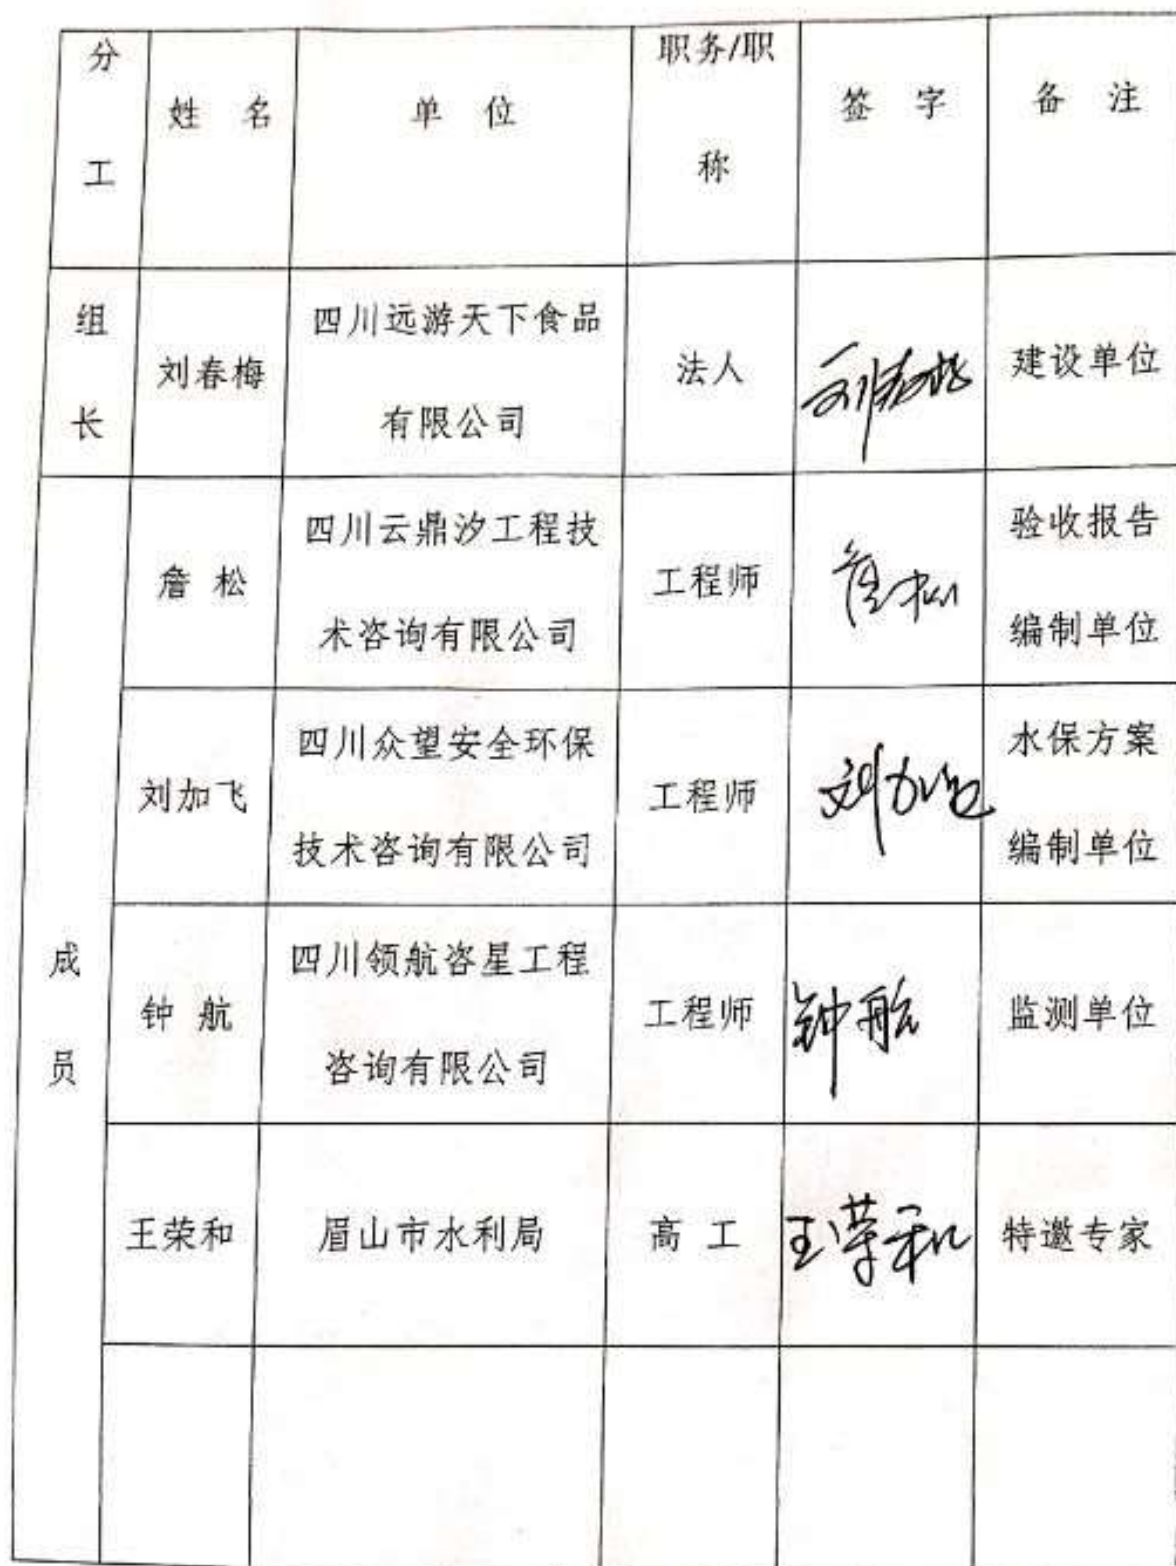 分工 姓 名 单 位 职务/职称 签 字 备 注
组长 刘春梅 四川远游天下食品有限公司 法人 刘春梅 建设单位
成员 詹 松 四川云鼎汐工程技术咨询有限公司 工程师 詹松 验收报告编制单位
刘加飞 四川众望安全环保技术咨询有限公司 工程师 刘加飞 水保方案编制单位
钟 航 四川领航咨星工程咨询有限公司 工程师 钟航 监测单位
王荣和 眉山市水利局 高 工 王荣和 特邀专家